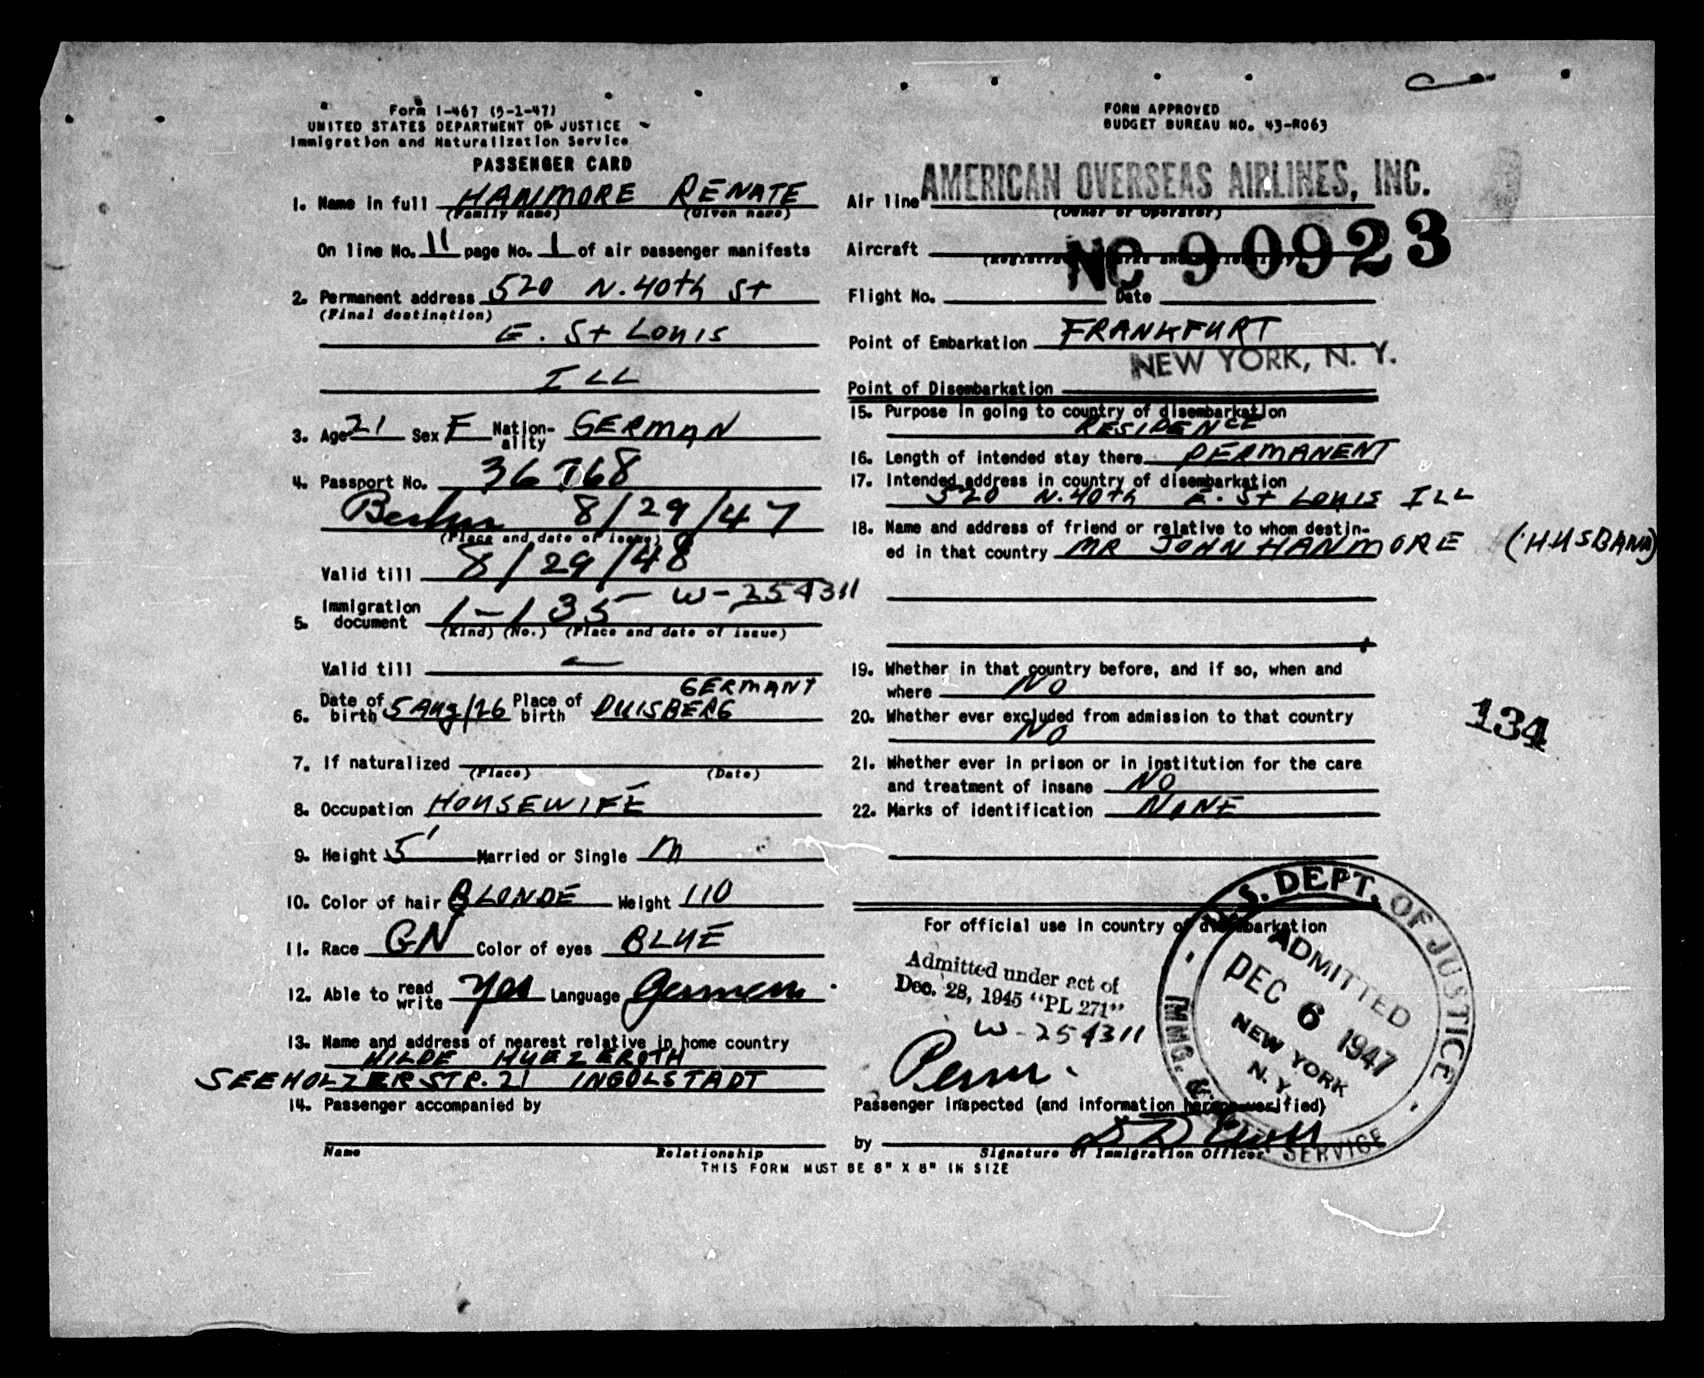 Form I-467 (5-1-47)
UNITED STATES DEPARTMENT OF JUSTICE
Immigration and Naturalization Service
PASSENGER CARD
1. Name in full HANMORE RENATE
(Family name) (Given name)
On line No. 11 page No. 1 of air passenger manifests
2. Permanent address 520 N. 40th St
(Final destination)
E. St Louis
ILL
3. Age 21 Sex F Nation-ality GERMAN
4. Passport No. 36768
Berlin 8/29/47
(Place and date of issue)
Valid till 8/29/48
5. Immigration document 1-135 W-254311
(Kind) (No.) (Place and date of issue)
Valid till —
6. Date of birth 5 Aug/26 Place of birth DUISBERG GERMANY
7. If naturalized
(Place) (Date)
8. Occupation HOUSEWIFE
9. Height 5' Married or Single M
10. Color of hair BLONDE Weight 110
11. Race GN Color of eyes BLUE
12. Able to read write Yes Language German
13. Name and address of nearest relative in home country
HILDE HUEZEROTH
SEEHOLZERSTR. 21 INGOLSTADT
14. Passenger accompanied by
Name Relationship
THIS FORM MUST BE 8" X 8" IN SIZE
FORM APPROVED
BUDGET BUREAU NO. 43-R063
Air line AMERICAN OVERSEAS AIRLINES, INC.
(Owner or Operator)
Aircraft NC 90923
Flight No. Date
Point of Embarkation FRANKFURT
NEW YORK, N. Y.
Point of Disembarkation
15. Purpose in going to country of disembarkation
RESIDENCE
16. Length of intended stay there PERMANENT
17. Intended address in country of disembarkation
520 N. 40th E. St Louis ILL
18. Name and address of friend or relative to whom destin-
ed in that country MR JOHN HANMORE (HUSBAND)
19. Whether in that country before, and if so, when and
where NO
20. Whether ever excluded from admission to that country
NO
134
21. Whether ever in prison or in institution for the care
and treatment of insane NO
22. Marks of identification NONE
For official use in country of disembarkation
Admitted under act of
Dec. 28, 1945 "PL 271"
W-254311
Perm.
U.S. DEPT. OF JUSTICE
IMMG. & SERVICE
ADMITTED
DEC 6 1947
NEW YORK
N. Y.
Passenger inspected (and information hereon verified)
by
Signature of Immigration Officer